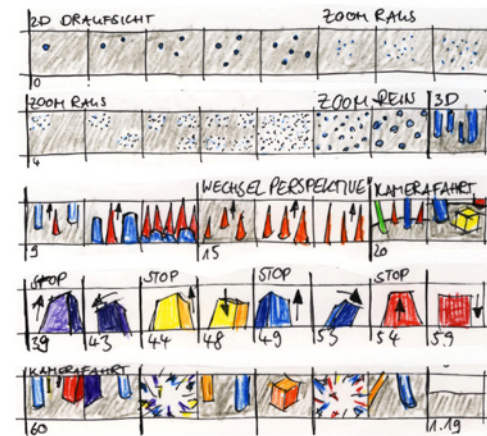 2D DRAUFSICHT ZOOM RAUS
0
ZOOM RAUS ZOOM REIN 3D
4
WECHSEL PERSPEKTIVE KAMERAFAHRT
9 15 20
STOP STOP STOP STOP
39 43 44 48 49 53 54 59
KAMERAFAHRT
60 1.19